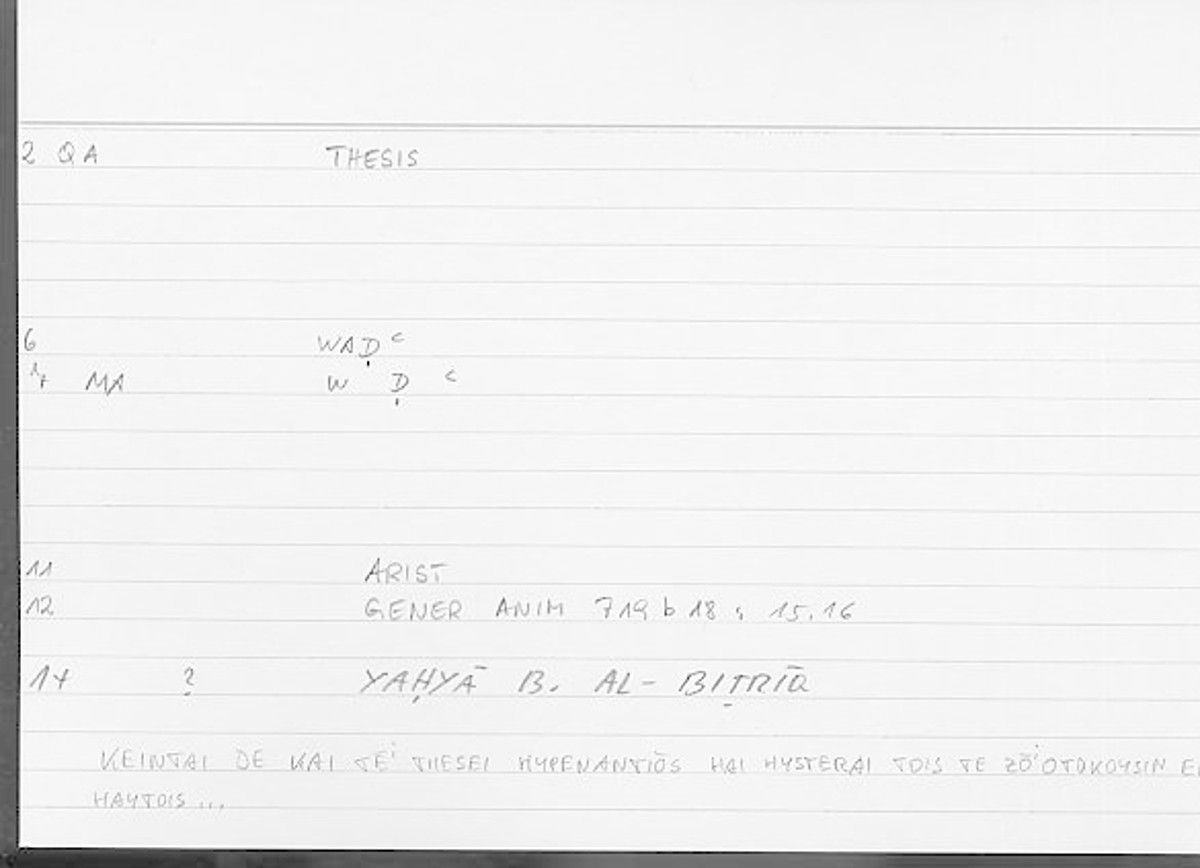 2 QA THESIS
6 WAḌ ʿ
17 MA W Ḍ ʿ
11 ARIST
12 GENER ANIM 719 b 18 ; 15.16
17 ? YAḤYĀ B. AL-BIṬRĪQ
KEINTAI DE KAI TĒⁱ THESEI HYPENANTIŌS HAI HYSTERAI TOIS TE ZŌⁱOTOKOYSIN E
HAYTOIS ...